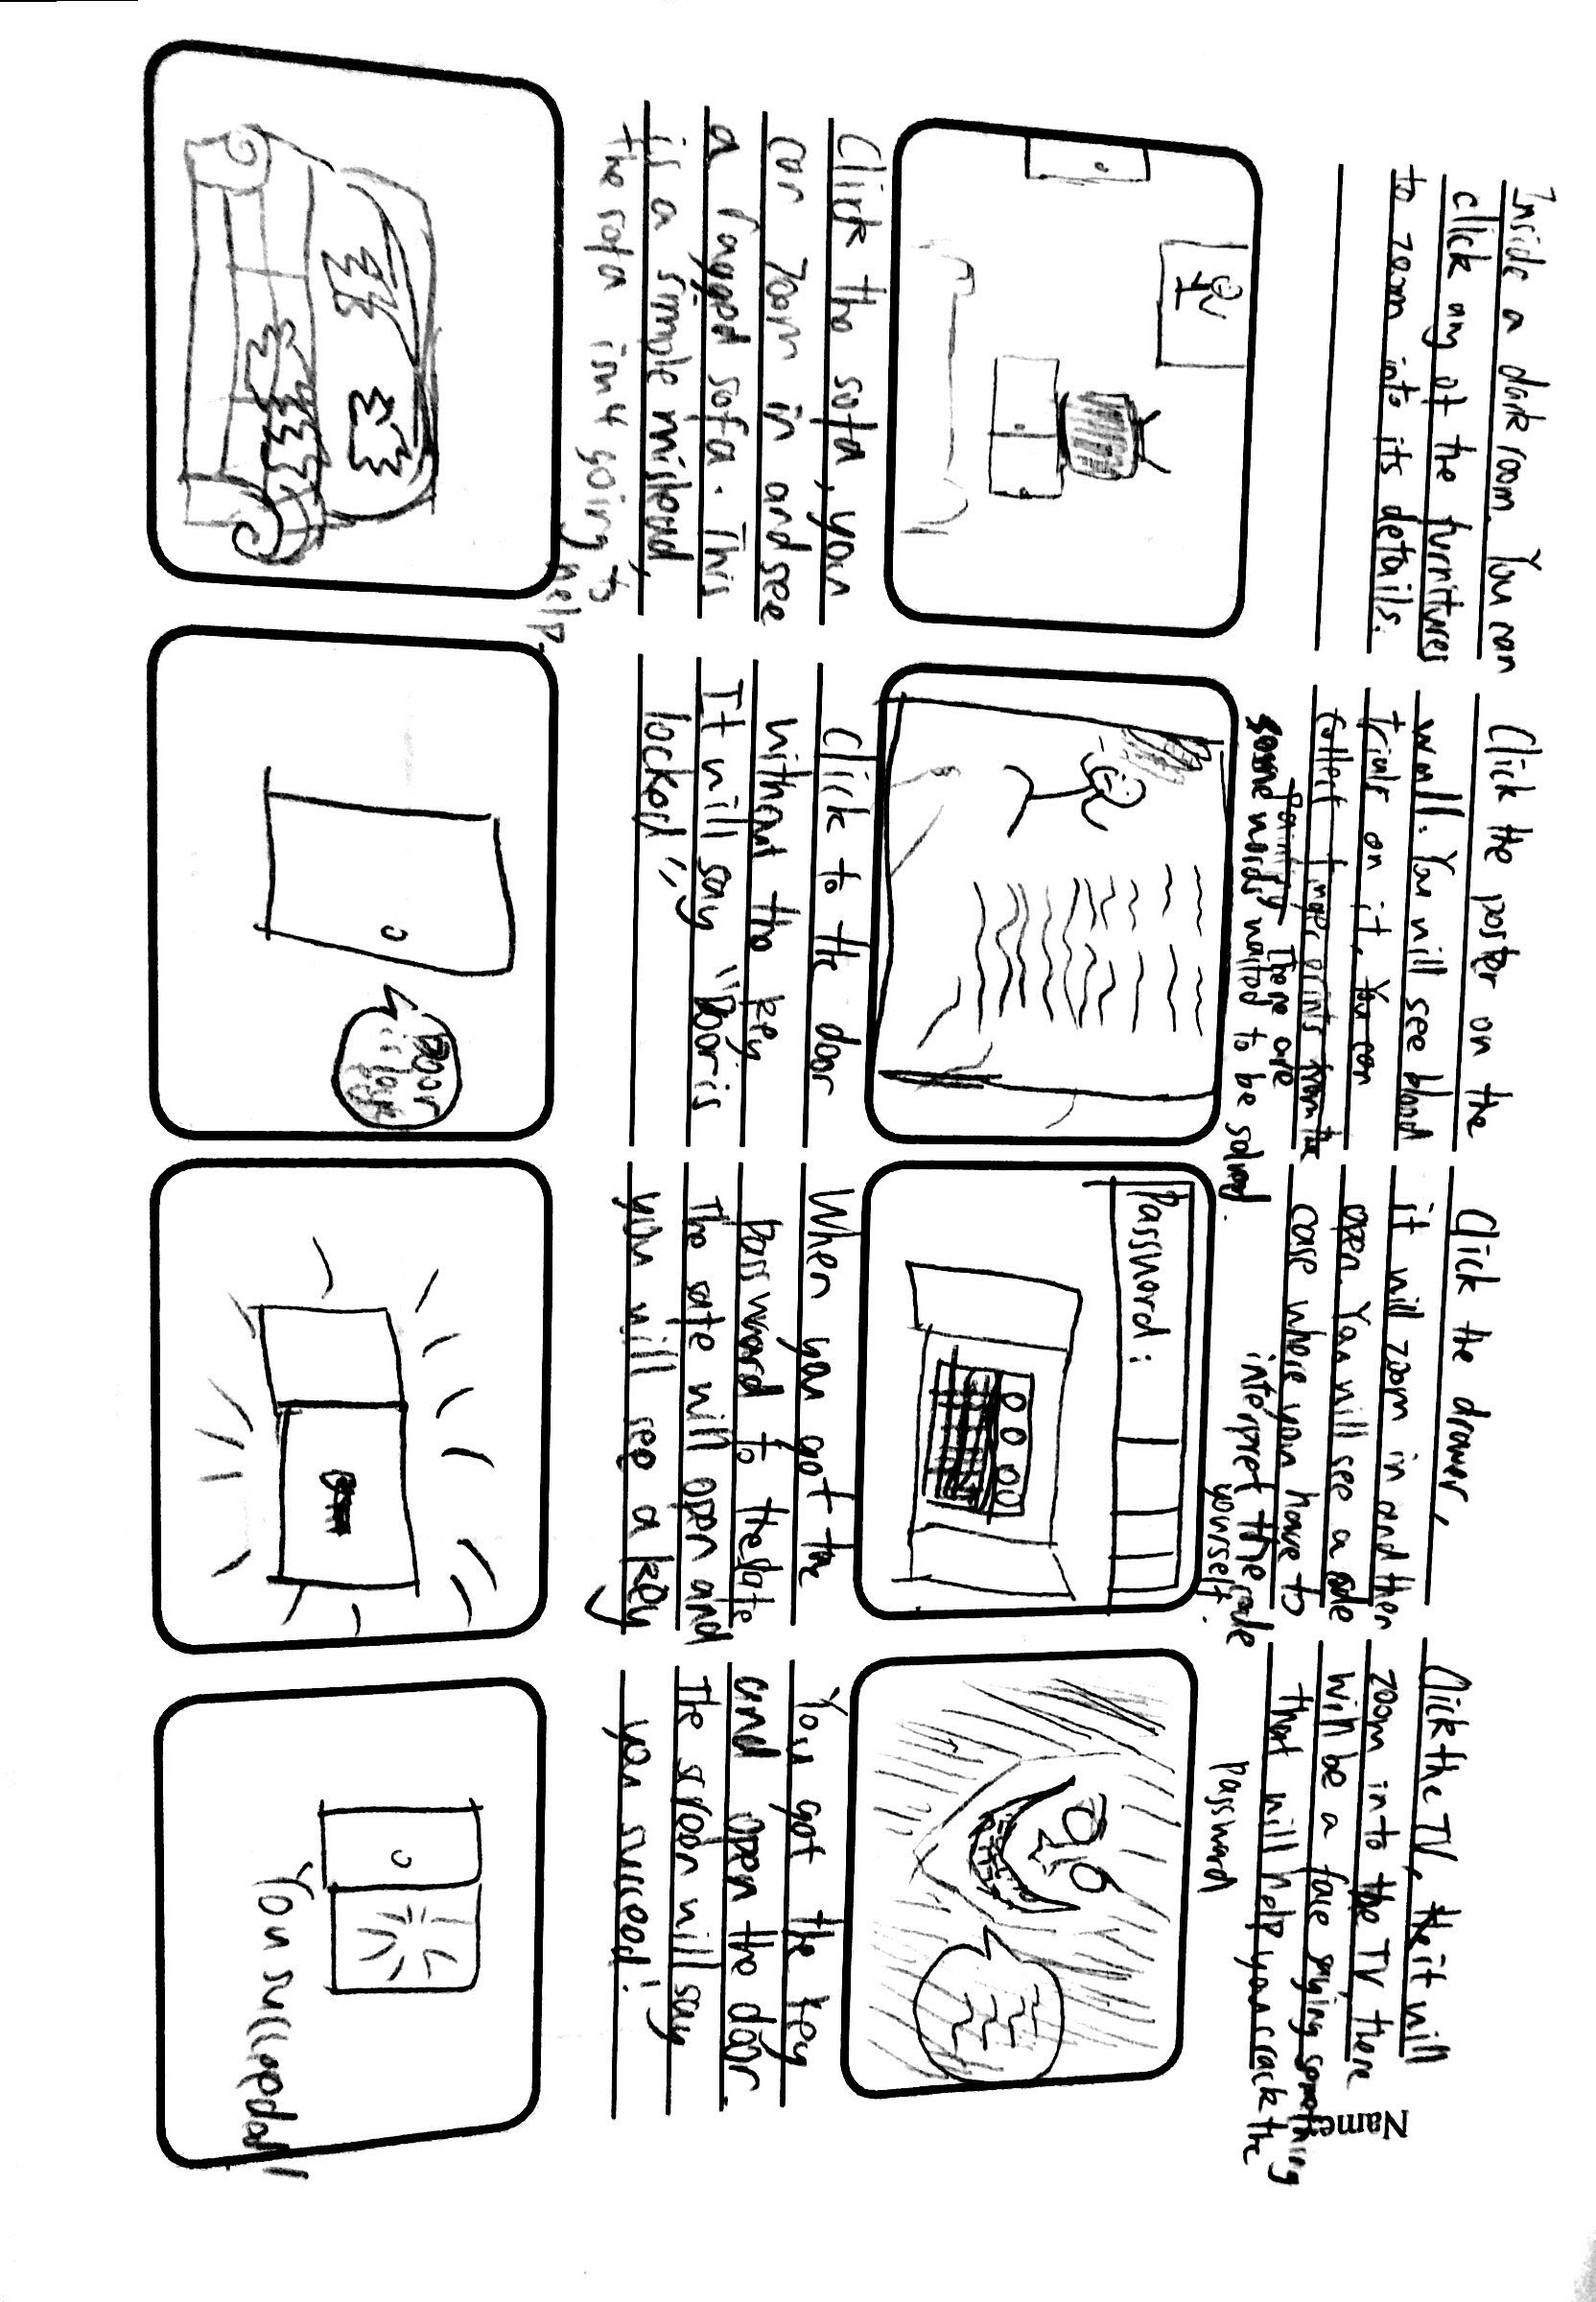 Name:
Inside a dark room. You can
click any of the furnitures
to zoom into its details.
Click the poster on the
wall. You will see blood
trials on it. You can
collect fingerprints from the
There are
some words waited to be solved.
Click the drawer,
it will zoom in and then
open. You will see a
case where you have to
interpret the code
yourself.
Password:
Click the TV, it will
zoom into the TV there
will be a face saying something
that will help you crack the
password
Click the sofa, you
can zoom in and see
a ragged sofa. This
is a simple mislead,
the sofa isn't going to
help.
Click to the door
without the key
It will say "Door is
locked",
Door
is
When you got the
password to the
The safe will open and
you will see a key
You got the key
and open the door.
The screen will say
you succeed!"
You succeeded!